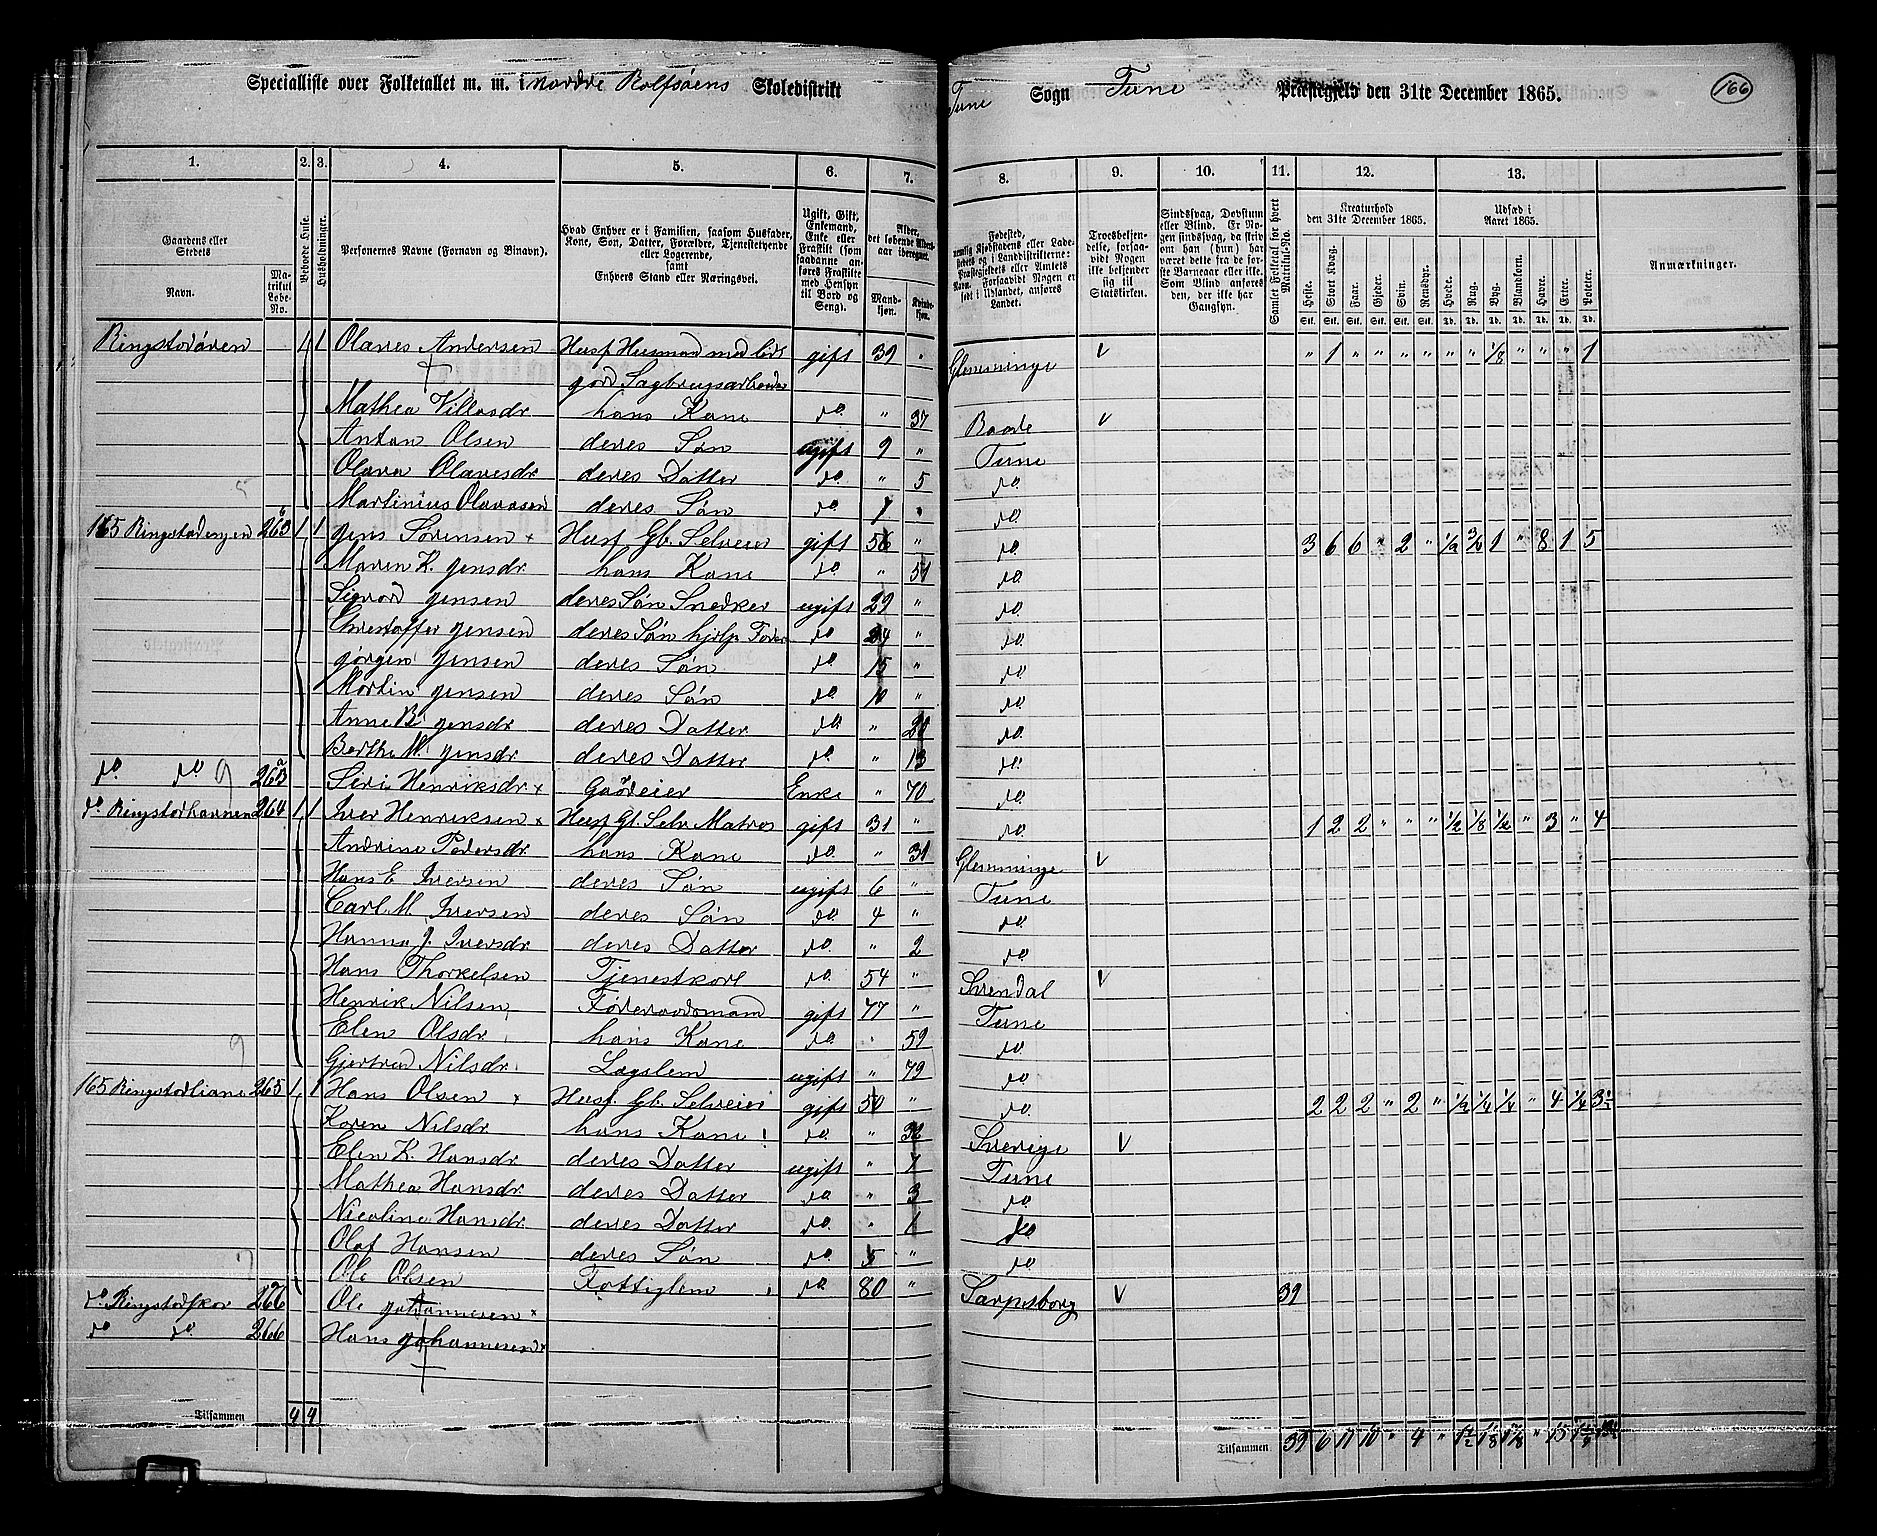 Specialliste over Folketallet m. m. i Nordre Rolfsøens Skoledistrikt Tune Sogn Tune Præstegjeld den 31te December 1865. 166
1. 2. 3. 4. 5. 6. 7. 8. 9. 10. 11. 12. 13.
Gaardens eller Stedets Navn. Matrikul Løbe-No. Beboede Huse. Husholdninger. Personernes Navne (Fornavn og Binavn).
Hvad Enhver er i Familien, saasom Husfader, Kone, Søn, Datter, Forældre, Tjenestetyende eller Logerende, samt Enhvers Stand eller Næringsvei.
Ugift, Gift, Enkemand, Enke eller Fraskilt (som saadanne anføres Fraskilte med Hensyn til Bord og Seng).
Alder, det løbende Alders-aar iberegnet. Mandkjøn. Kvindekjøn.
Troesbekjendelse, forsaavidt Nogen ikke bekjender sig til Statskirken.
Sindssvag, Døvstum eller Blind. Er Nogen sindssvag, da skrives om han (hun) har været dette fra de første Barneaar eller ikke. Som Blind anføres den, der ikke har Gangsyn.
Samlet Folketal for hvert Matrikul-No.
Kreaturhold den 31te December 1865. Heste. Stort Kvæg. Faar. Gjeder. Svin. Rensdyr.
Udsæd i Aaret 1865. Hvede. Rug. Byg. Blandkorn. Havre. Erter. Poteter.
Anmærkninger.
Ringstadøren 1 1 Olaves Andersen Husf Husmand med Jord gift 39 " Glemminge v " 1 " " " " " " 1/8 " " " 1
Sagbrugsarbeider
Mathea Villasdr. hans Kone do. " 37 Raade v
Anton Olsen deres Søn ugift 9 " Tune
Olava Olavesdr. deres Datter do. " 5 do.
Martinius Olavesen deres Søn do. 1 " do.
165 Ringstadengen 263 b 1 1 Jens Sørensen x Husf Gb. Selveier gift 56 " do. 3 6 6 " 2 " 1/2 1 " 8 1 5
Maren K. Jensdr. hans Kone do. " 51 do.
Sigvard Jensen deres Søn Snedker ugift 29 " do.
Christoffer Jensen deres Søn hjelp Fader do. 24 " do.
Jørgen Jensen deres Søn do. 15 " do.
Martin Jensen deres Søn do. 10 " do.
Anne B. Jensdr. deres Datter do. " 20 do.
Berthe M. Jensdr. deres Datter do. " 13 do.
do. do 9 263 a Siri Henriksdr. x Gaardeier Enke " 70 do.
do. Ringstadhavnen 264 1 1 Iver Henriksen x Husf Gb. Selv Matros gift 31 " do. 1 2 2 " " " 1/2 1/8 1/2 " 3 " 4
Andrine Pedersdr. hans Kone do. " 31 Glemminge v
Hans E Iversen deres Søn ugift 6 " Tune
Carl M. Iversen deres Søn do. 4 " do.
Hanna J. Iversdr. deres Datter do. " 2 do.
Hans Thorkelsen Tjenestkarl do. 54 " Svendal v
Henrik Nilsen Føderaadsmand gift 77 " Tune
Elen Olsdr. hans Kone do. " 59 do.
9 Gjertrud Nilsdr. Lægslem ugift " 79 do.
165 Ringstadliane 265 1 1 Hans Olsen x Husf. Gb. Selveier gift 50 " do. 2 2 2 " 2 " 1/2 1/4 1/4 " 4 1/4
Karen Nilsdr. hans Kone do. " 32 Sverige v
Elen K. Hansdr. deres Datter ugift " 7 Tune
Mathea Hansdr. deres Datter do. " 3 do.
Nicoline Hansdr. deres Datter do. " 1 do
Olaf Hansen deres Søn do. 5 " do.
7 Ole Olsen Fattiglem do. 80 " Sarpsborg v 39
do. Ringstadskov 266 Ole Johannesen x
do do. 266 Hans Johannesen x
Tilsammen 4 4 Tilsammen 39 6 11 10 " 4 "